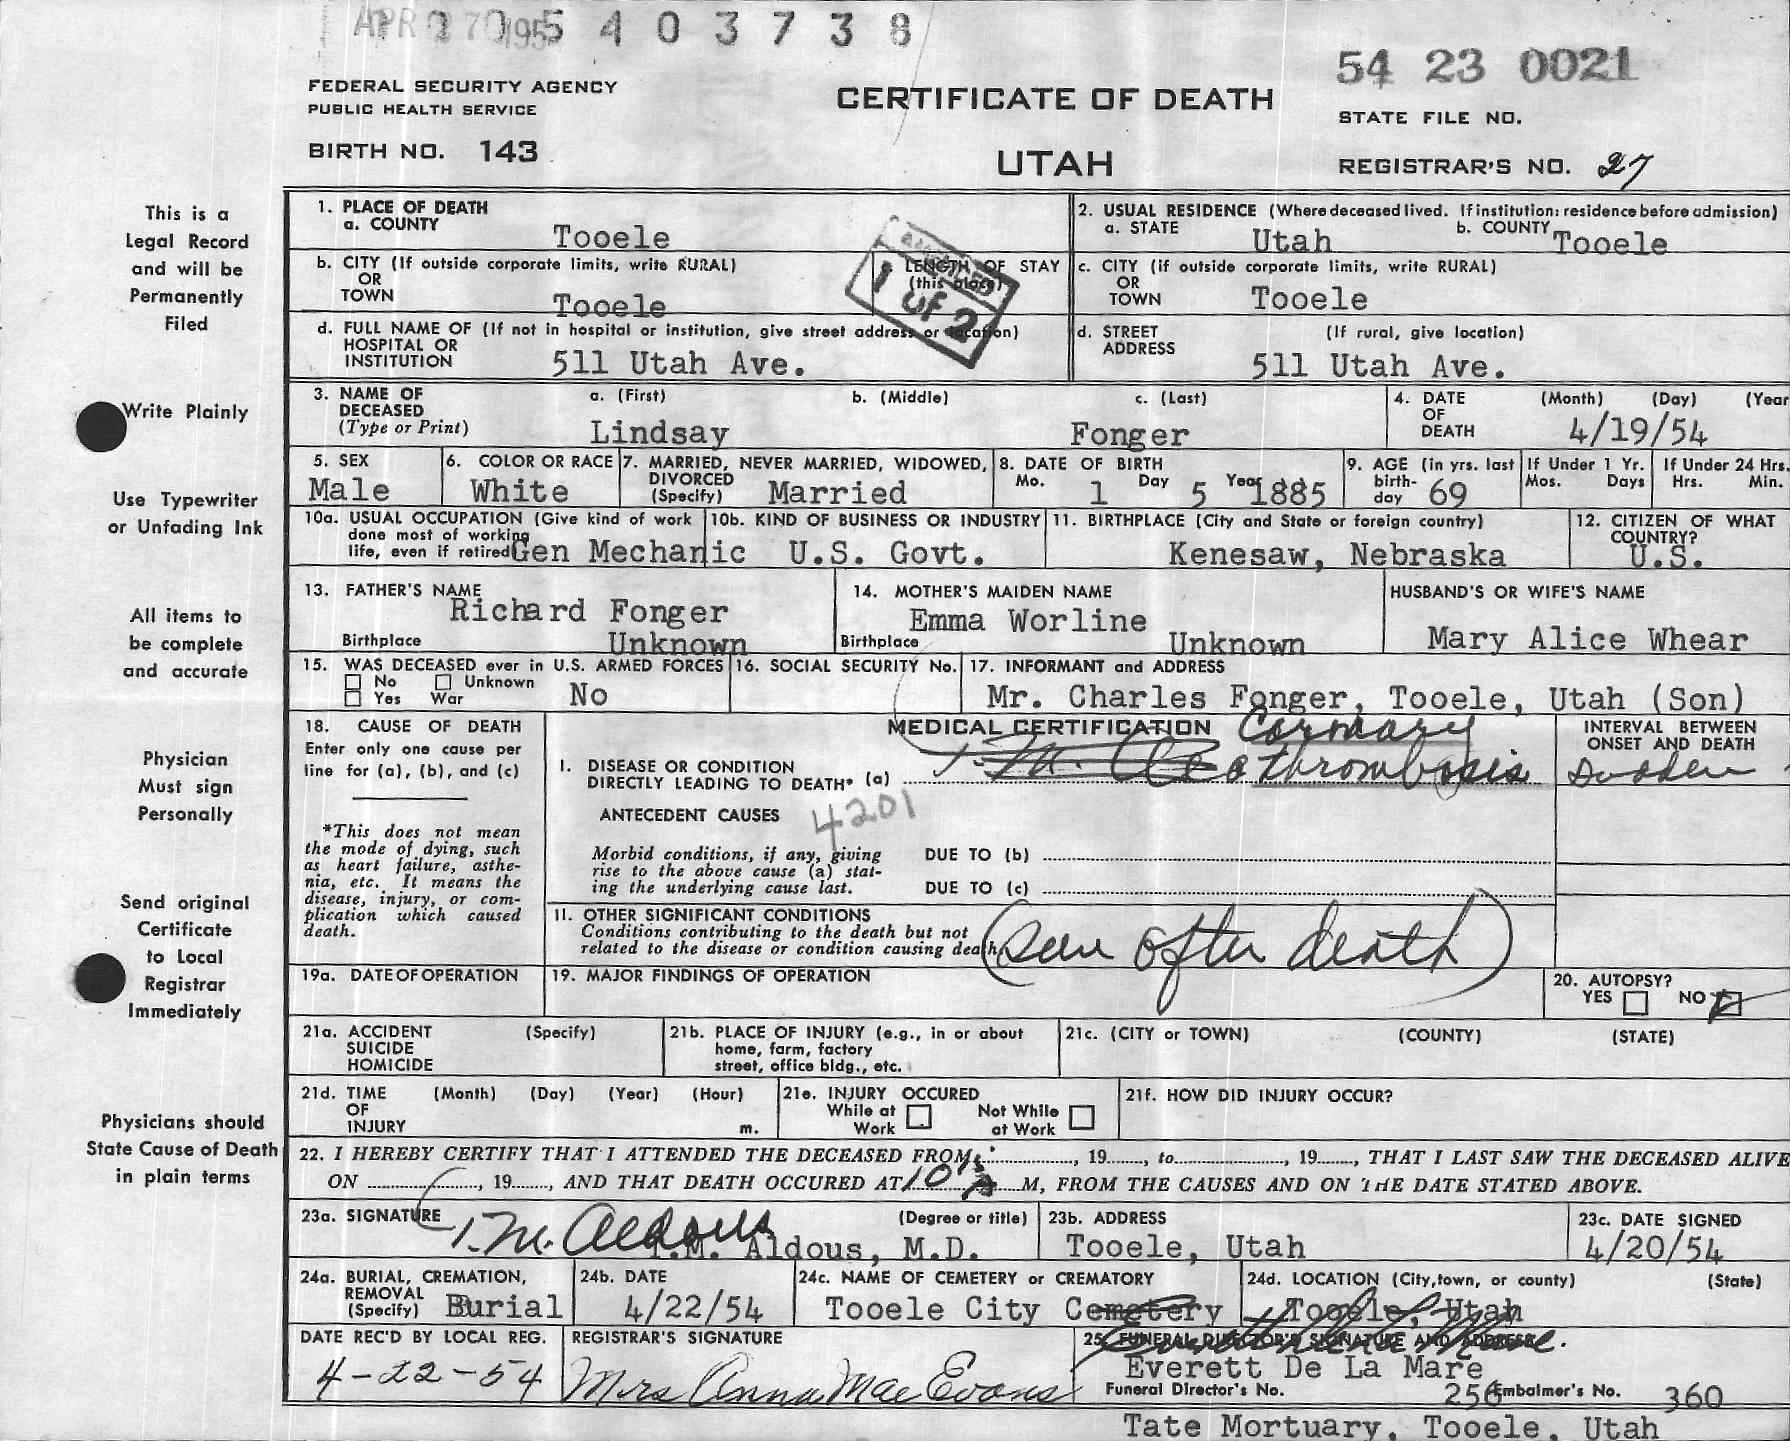 5 4 0 3 7 3 8
54 23 0021
FEDERAL SECURITY AGENCY
PUBLIC HEALTH SERVICE
CERTIFICATE OF DEATH
STATE FILE NO.
BIRTH NO. 143
UTAH
REGISTRAR'S NO. 27
This is a
Legal Record
and will be
Permanently
Filed
Write Plainly
Use Typewriter
or Unfading Ink
All items to
be complete
and accurate
Physician
Must sign
Personally
Send original
Certificate
to Local
Registrar
Immediately
Physicians should
State Cause of Death
in plain terms
1. PLACE OF DEATH
a. COUNTY Tooele
2. USUAL RESIDENCE (Where deceased lived. If institution: residence before admission)
a. STATE Utah b. COUNTY Tooele
b. CITY (If outside corporate limits, write RURAL)
OR
TOWN Tooele
LENGTH OF STAY
(this place)
1 OF 2
c. CITY (if outside corporate limits, write RURAL)
OR
TOWN Tooele
d. FULL NAME OF (If not in hospital or institution, give street address or location)
HOSPITAL OR
INSTITUTION 511 Utah Ave.
d. STREET (If rural, give location)
ADDRESS 511 Utah Ave.
3. NAME OF a. (First) b. (Middle) c. (Last)
DECEASED
(Type or Print) Lindsay Fonger
4. DATE (Month) (Day) (Year
OF
DEATH 4/19/54
5. SEX
Male
6. COLOR OR RACE
White
7. MARRIED, NEVER MARRIED, WIDOWED,
DIVORCED
(Specify) Married
8. DATE OF BIRTH
Mo. 1 Day 5 Year 1885
9. AGE (in yrs. last
birth-
day 69
If Under 1 Yr.
Mos. Days
If Under 24 Hrs.
Hrs. Min.
10a. USUAL OCCUPATION (Give kind of work
done most of working
life, even if retired Gen Mechanic
10b. KIND OF BUSINESS OR INDUSTRY
U.S. Govt.
11. BIRTHPLACE (City and State or foreign country)
Kenesaw, Nebraska
12. CITIZEN OF WHAT
COUNTRY?
U.S.
13. FATHER'S NAME
Richard Fonger
Birthplace Unknown
14. MOTHER'S MAIDEN NAME
Emma Worline
Birthplace Unknown
HUSBAND'S OR WIFE'S NAME
Mary Alice Whear
15. WAS DECEASED ever in U.S. ARMED FORCES
No Unknown
Yes War No
16. SOCIAL SECURITY No.
17. INFORMANT and ADDRESS
Mr. Charles Fonger, Tooele, Utah (Son)
18. CAUSE OF DEATH
Enter only one cause per
line for (a), (b), and (c)
*This does not mean
the mode of dying, such
as heart failure, asthe-
nia, etc. It means the
disease, injury, or com-
plication which caused
death.
MEDICAL CERTIFICATION Coronary
I. DISEASE OR CONDITION
DIRECTLY LEADING TO DEATH* (a) thrombosis
INTERVAL BETWEEN
ONSET AND DEATH
Sudden
ANTECEDENT CAUSES 4201
Morbid conditions, if any, giving
rise to the above cause (a) stat-
ing the underlying cause last.
DUE TO (b)
DUE TO (c)
II. OTHER SIGNIFICANT CONDITIONS
Conditions contributing to the death but not
related to the disease or condition causing death
(seen after death)
19a. DATE OF OPERATION
19. MAJOR FINDINGS OF OPERATION
20. AUTOPSY?
YES NO
21a. ACCIDENT (Specify)
SUICIDE
HOMICIDE
21b. PLACE OF INJURY (e.g., in or about
home, farm, factory
street, office bldg., etc.
21c. (CITY or TOWN) (COUNTY) (STATE)
21d. TIME (Month) (Day) (Year) (Hour)
OF
INJURY m.
21e. INJURY OCCURED
While at Not While
Work at Work
21f. HOW DID INJURY OCCUR?
22. I HEREBY CERTIFY THAT I ATTENDED THE DECEASED FROM , 19 , to , 19 , THAT I LAST SAW THE DECEASED ALIVE
ON , 19 , AND THAT DEATH OCCURED AT 10 M, FROM THE CAUSES AND ON THE DATE STATED ABOVE.
23a. SIGNATURE (Degree or title)
T.M. Aldous
T.M. Aldous, M.D.
23b. ADDRESS
Tooele, Utah
23c. DATE SIGNED
4/20/54
24a. BURIAL, CREMATION,
REMOVAL
(Specify) Burial
24b. DATE
4/22/54
24c. NAME OF CEMETERY or CREMATORY
Tooele City Cemetery
24d. LOCATION (City,town, or county) (State)
Tooele, Utah
DATE REC'D BY LOCAL REG.
4-22-54
REGISTRAR'S SIGNATURE
Mrs Anna Mae Evans
25. FUNERAL DIRECTOR'S SIGNATURE AND ADDRESS.
Everett De La Mare
Funeral Director's No. 256 Embalmer's No. 360
Tate Mortuary, Tooele, Utah